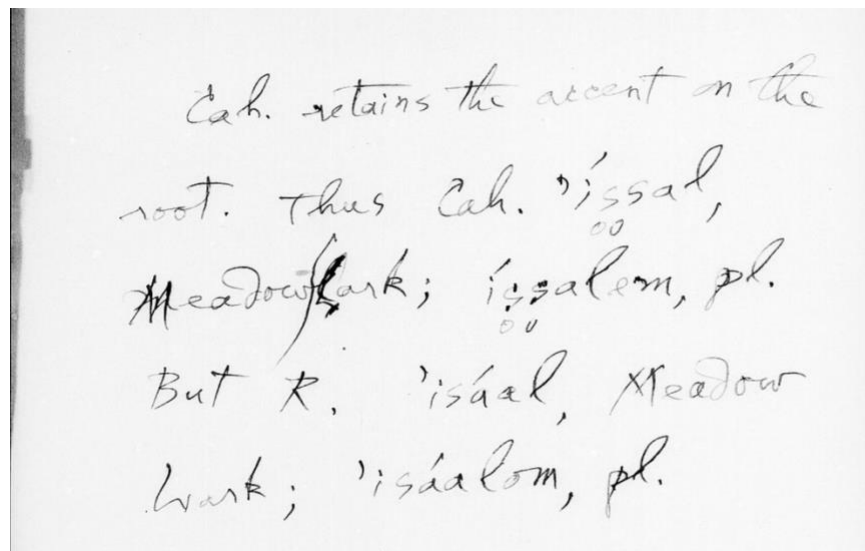 Cah. retains the accent on the
root. Thus Cah. 'íssal,
Meadowlark; íssalem, pl.
But R. 'isáal, Meadow
Lark; 'isáalom, pl.